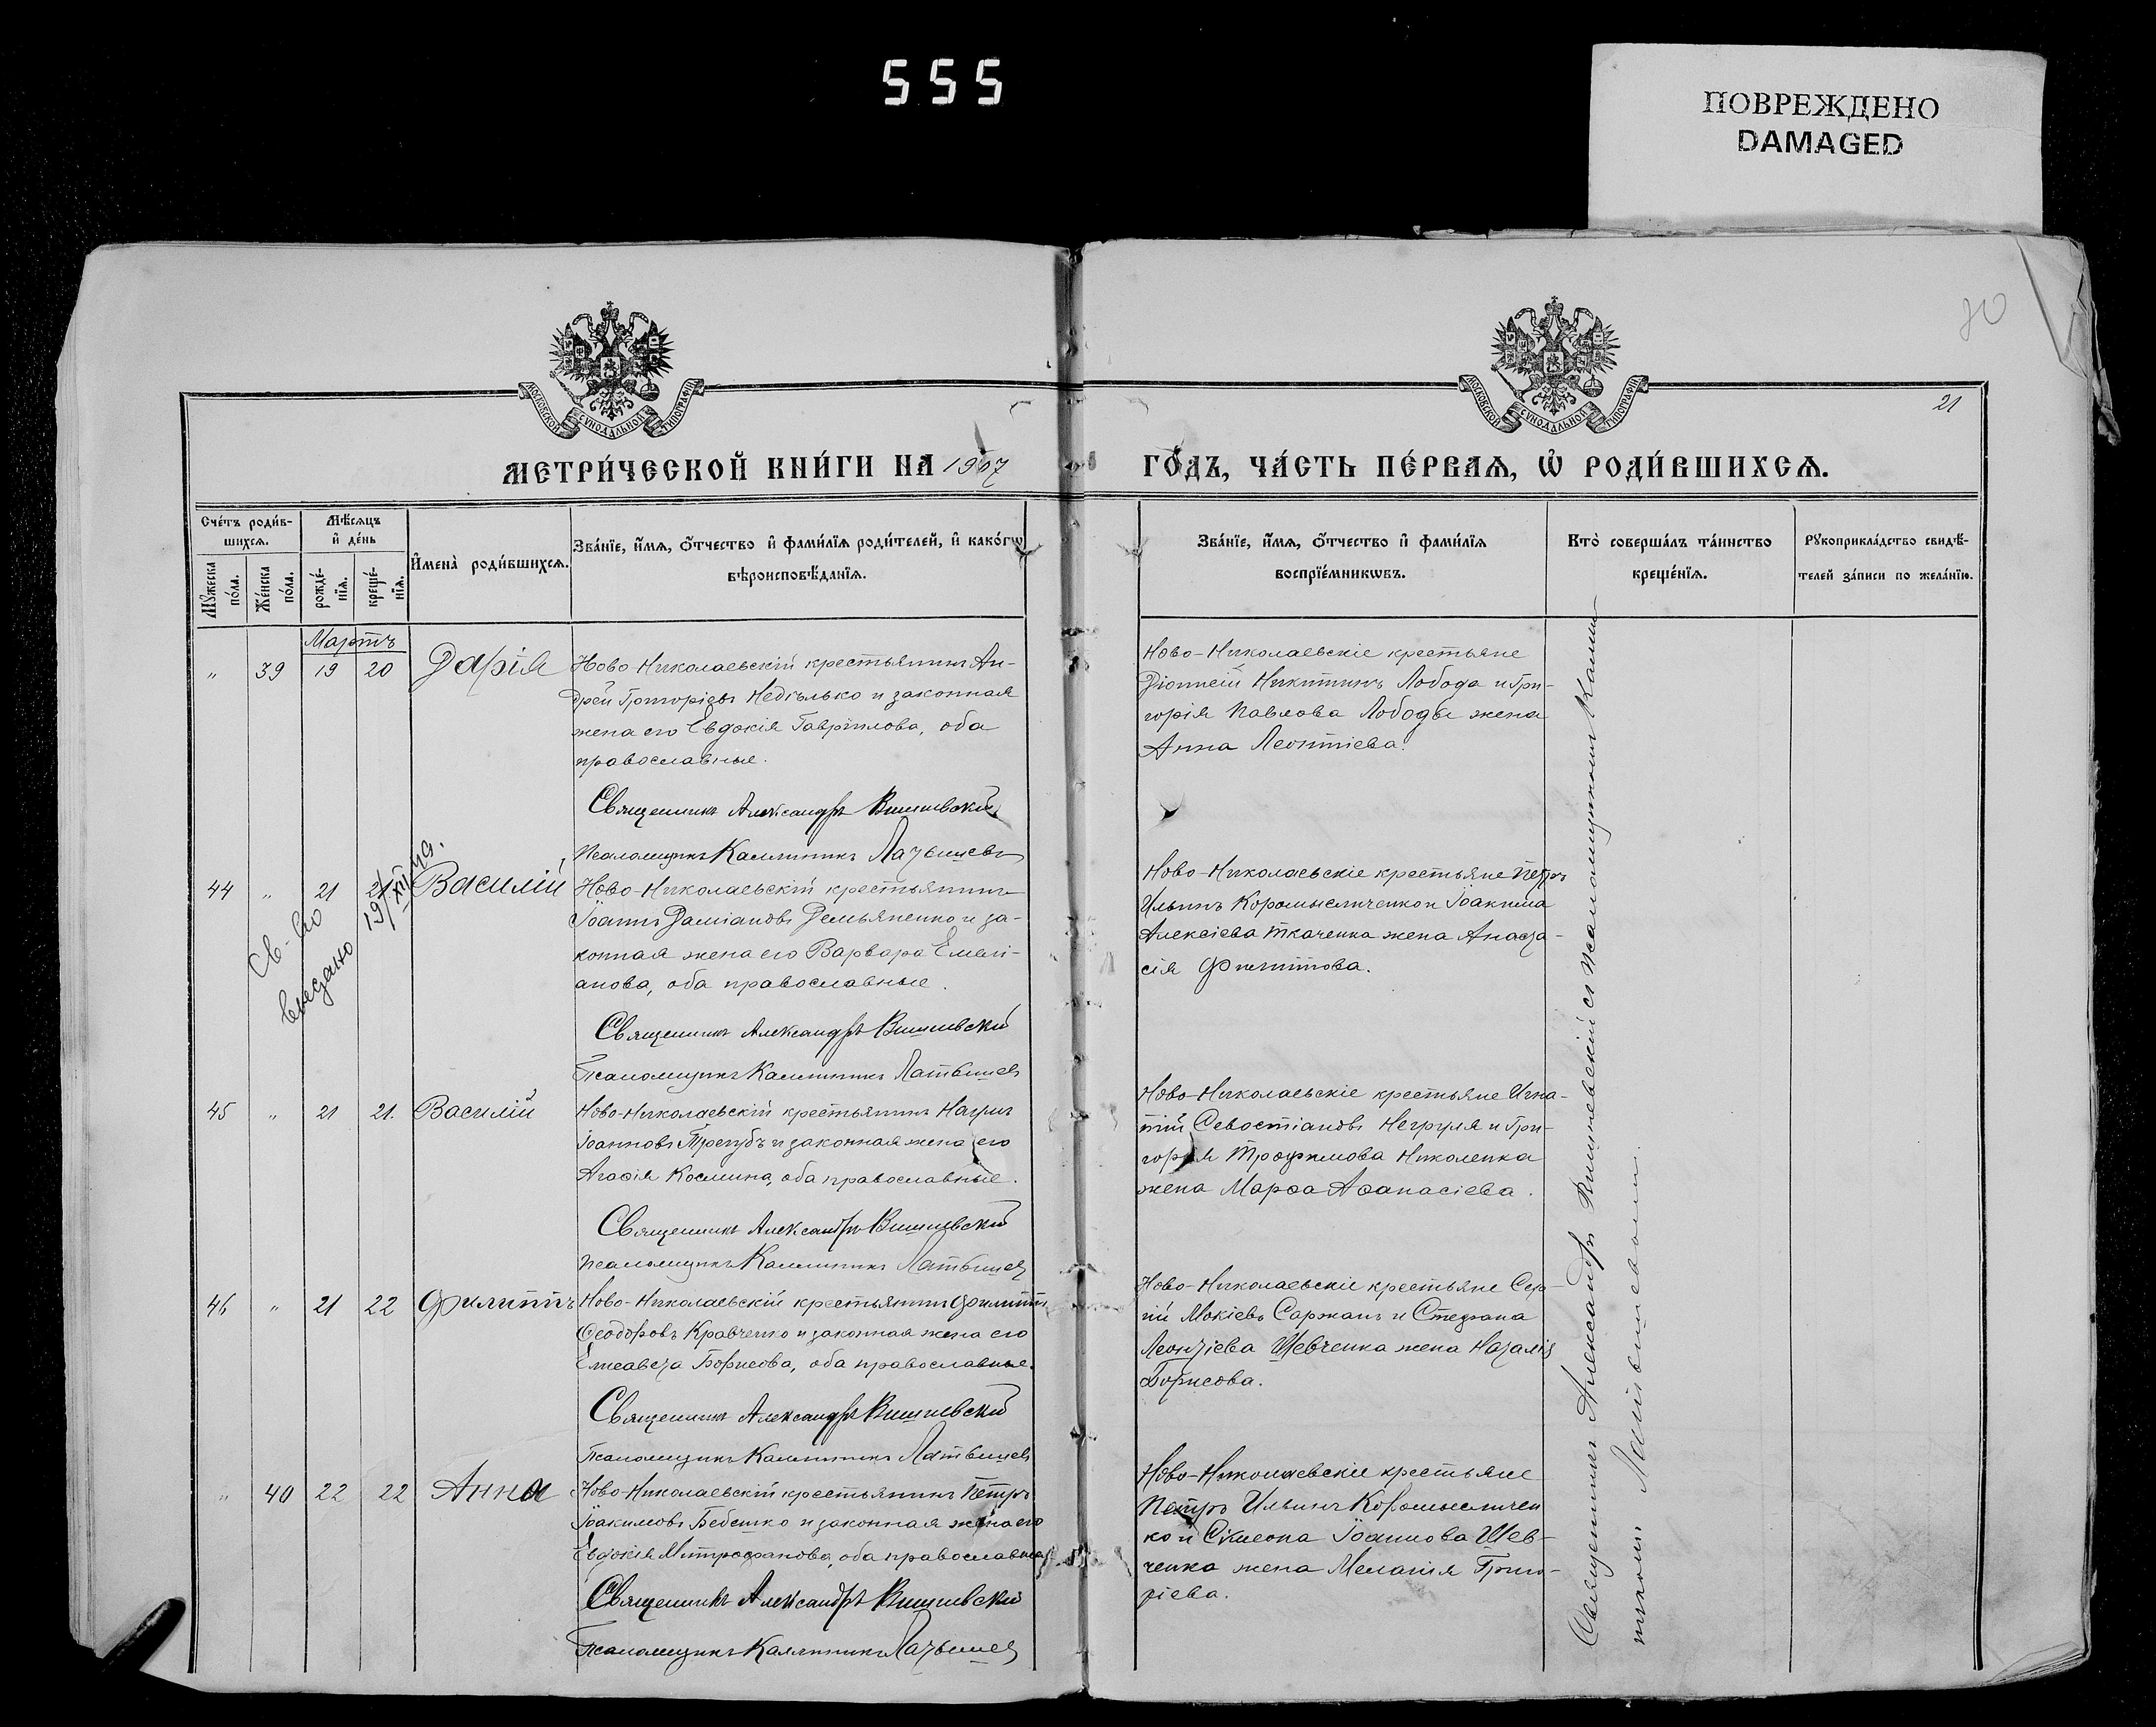 555
ПОВРЕЖДЕНО
DAMAGED
МОСКОВСКОЙ СѴНОДАЛЬНОЙ ТИПОГРАФІИ
МОСКОВСКОЙ СѴНОДАЛЬНОЙ ТИПОГРАФІИ
21
МЕТРИ́ЧЕСКОЙ КНИ́ГИ НА 1907
ГО́ДЪ, ЧА́СТЬ ПЕ́РВАѦ, Ѡ҆ РОДИ́ВШИХСѦ.
Сче́тъ роди́в-
шихсѧ.
Мꙋ́жеска по́ла.
Же́нска по́ла.
Мѣ́сѧцъ
и҆ де́нь
рожде́-нїѧ.
креще́-нїѧ.
И҆мена̀ роди́вшихсѧ.
Зва́нїе, и҆́мѧ, ѻ҆́тчество и҆ фами́лїѧ роди́телей, и҆ како́гѡ
вѣроисповѣ́данїѧ.
Зва́нїе, и҆́мѧ, ѻ҆́тчество и҆ фами́лїѧ
воспрїе́мникѡвъ.
Кто̀ соверша́лъ та́инство
креще́нїѧ.
Рꙋкоприкла́дство свидѣ́-
телей за́писи по жела́нїю.
Мартъ
" 39 19 20 Дарія
Ново-Николаевскій крестьянинъ Ан-
дрей Григоріевъ Недѣлько и законная
жена его Евдокія Гавріилова, оба
православные.
Священникъ Александръ Вишневскій
Псаломщикъ Каллиникъ Латышевъ
Ново-Николаевскіе крестьяне
Діонисій Никитинъ Лобода и Гри-
горія Павлова Лободы жена
Анна Леонтіева.
44 " 21 21 Василій
Св-во
выдано 19
Ново-Николаевскій крестьянинъ
Іоаннъ Даміановъ Демьяненко и за-
конная жена его Варвара Емели-
анова, оба православные.
Священникъ Александръ Вишневскій
Псаломщикъ Каллиникъ Латышевъ
Ново-Николаевскіе крестьяне Петръ
Ильинъ Коромысличенко и Іоакима
Алексіева Ткаченка жена Анаста-
сія Филиппова.
45 " 21 21. Василій
Ново-Николаевскій крестьянинъ Наумъ
Іоанновъ Трегубъ и законная жена его
Агафія Космина, оба православные.
Священникъ Александръ Вишневскій
Псаломщикъ Каллиникъ Латышевъ
Ново-Николаевскіе крестьяне Игна-
тій Севостіановъ Негруля и Гри-
горія Трофимова Николенка
жена Марѳа Аѳанасіева.
46 " 21 22 Филиппъ
Ново-Николаевскій крестьянинъ Филиппъ
Ѳеодоровъ Кравченко и законная жена его
Елисавета Борисова, оба православные.
Священникъ Александръ Вишневскій
Псаломщикъ Каллиникъ Латышевъ
Ново-Николаевскіе крестьяне Сер-
гій Мокіевъ Саржанъ и Стефана
Леонтіева Шевченка жена Наталія
Борисова.
" 40 22 22 Анна
Ново-Николаевскій крестьянинъ Петръ
Іоакимовъ Бебешко и законная жена его
Евдокія Митрофанова, оба православные.
Священникъ Александръ Вишневскій
Псаломщикъ Каллиникъ Латышевъ
Ново-Николаевскіе крестьяне
Петръ Ильинъ Коромысличен
ко и Сімеона Іоаннова Шев-
ченка жена Меланія Григо-
ріева.
Священникъ Александръ Вишневскій съ псаломщикомъ Калли-
никомъ Латышевымъ.